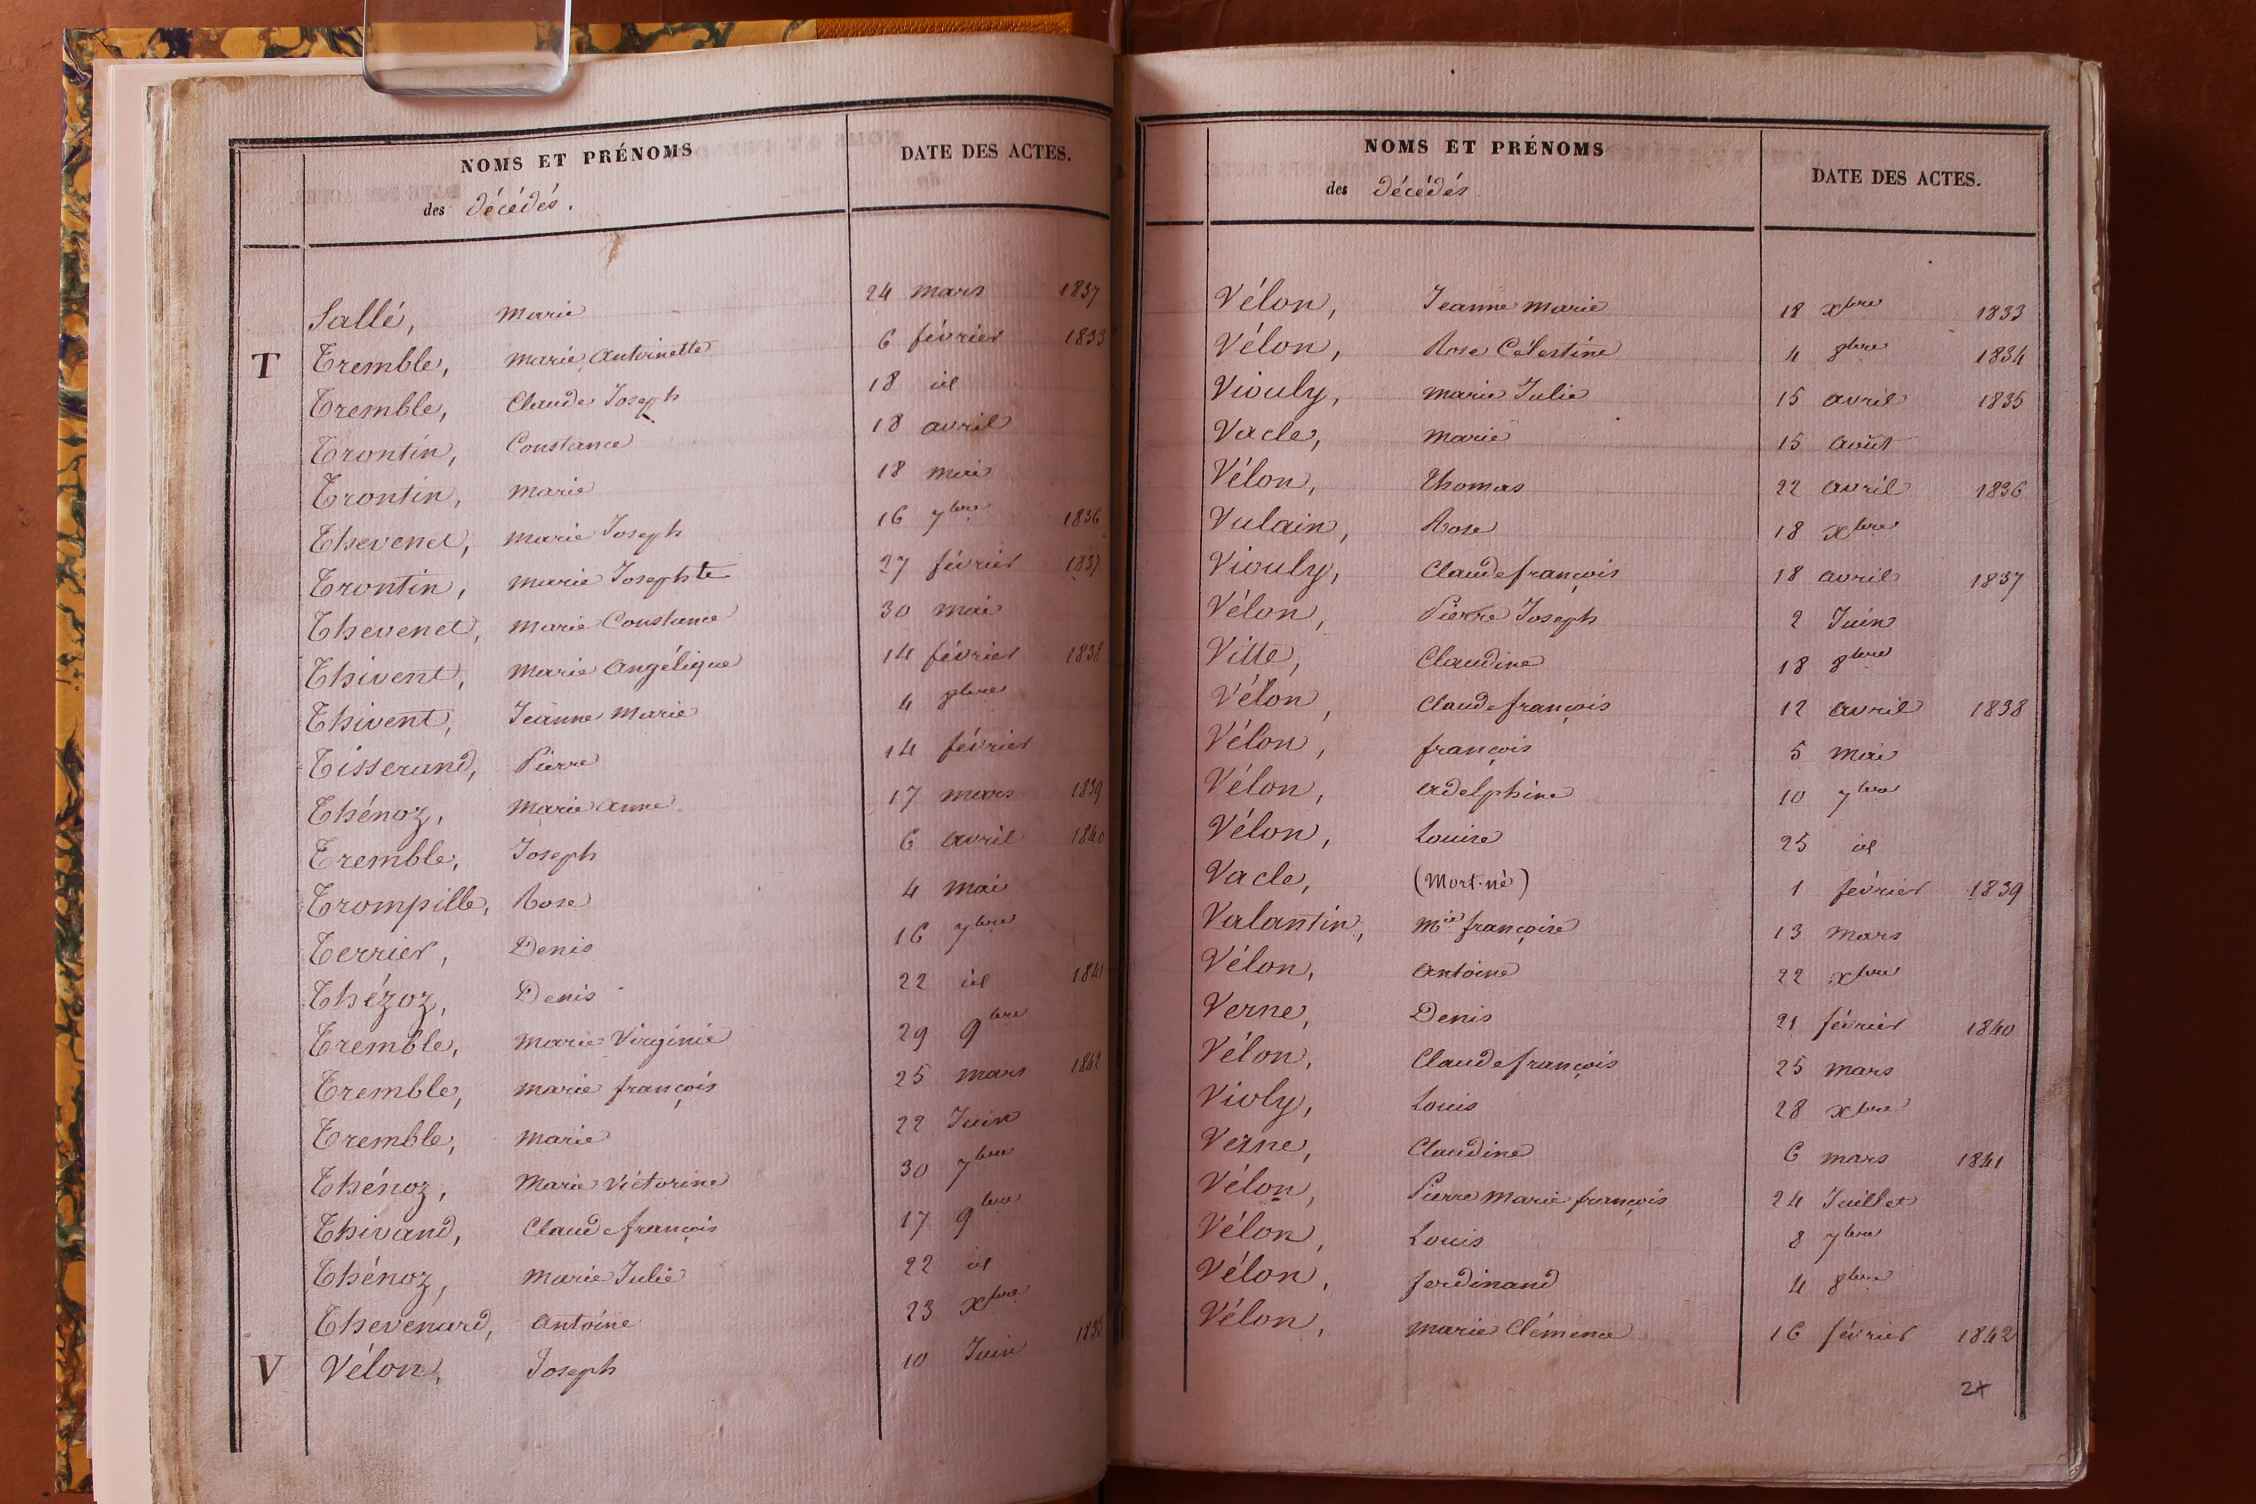 NOMS ET PRÉNOMS
des décédés.
DATE DES ACTES.
Sallé, Marie 24 mars 1837
T Tremble, Marie Antoinette 6 février 1833
Tremble, Claude Joseph 18 id
Trontin, Constance 18 avril
Trontin, Marie 18 mai
Thevenet, Marie Joseph 16 7bre 1836
Trontin, Marie Josephte 27 février 1837
Thevenet, Marie Constance 30 mai
Thivent, Marie Angélique 14 février 1838
Thivent, Jeanne Marie 4 8bre
Tisserand, Pierre 14 février
Thénoz, Marie Anne 17 mars 1839
Tremble, Joseph 6 avril 1840
Trompille, Rose 4 mai
Terrier, Denis 16 7bre
Thézoz, Denis 22 id 1841
Tremble, Marie Virginie 29 9bre
Tremble, Marie françois 25 mars 1842
Tremble, Marie 22 Juin
Thénoz, Marie Victorine 30 7bre
Thivand, Claude françois 17 9bre
Thénoz, Marie Julie 22 id
Thevenard, Antoine 23 xbre
V Vélon, Joseph 10 Juin 183
NOMS ET PRÉNOMS
des décédés
DATE DES ACTES.
Vélon, Jeanne Marie 18 xbre 1833
Vélon, Rose Célestine 4 8bre 1834
Viouly, Marie Julie 15 avril 1835
Vacle, Marie 15 août
Vélon, Thomas 22 avril 1836
Vulain, Rose 18 xbre
Viouly, Claude françois 18 avril 1837
Vélon, Pierre Joseph 2 Juin
Vitte, Claudine 18 8bre
Vélon, Claude françois 12 avril 1838
Vélon, françois 5 mai
Vélon, Adelphine 10 7bre
Vélon, Louise 25 id
Vacle, (Mort-né) 1 février 1839
Valantin, Mie françoise 13 mars
Vélon, Antoine 22 xbre
Verne, Denis 21 février 1840
Vélon, Claude françois 25 mars
Violy, Louis 28 xbre
Verne, Claudine 6 mars 1841
Vélon, Pierre Marie françois 24 Juillet
Vélon, Louis 8 7bre
Vélon, ferdinand 4 8bre
Vélon, Marie Clémence 16 février 1842